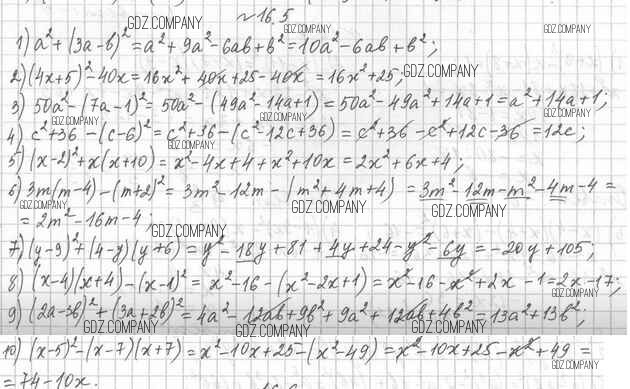 №16.5
GDZ.COMPANY
GDZ.COMPANY GDZ.COMPANY
1) a² + (3a - b)² = a² + 9a² - 6ab + b² = 10a² - 6ab + b²;
2) (4x+5)² - 40x = 16x² + 40x + 25 - 40x = 16x² + 25; GDZ.COMPANY
3) 50a² - (7a-1)² = 50a² - (49a² - 14a + 1) = 50a² - 49a² + 14a + 1 = a² + 14a + 1;
GDZ.COMPANY GDZ.COMPANY GDZ.COMPANY
4) c² + 36 - (c-6)² = c² + 36 - (c² - 12c + 36) = c² + 36 - c² + 12c - 36 = 12c;
GDZ.COMPANY
5) (x-2)² + x(x+10) = x² - 4x + 4 + x² + 10x = 2x² + 6x + 4;
6) 3m(m-4) - (m+2)² = 3m² - 12m - (m² + 4m + 4) = 3m² - 12m - m² - 4m - 4 =
GDZ.COMPANY GDZ.COMPANY GDZ.COMPANY
= 2m² - 16m - 4;
GDZ.COMPANY
7) (y-9)² + (4-y)(y+6) = y² - 18y + 81 + 4y + 24 - y² - 6y = -20y + 105;
8) (x-4)(x+4) - (x-1)² = x² - 16 - (x² - 2x + 1) = x² - 16 - x² + 2x - 1 = 2x - 17;
GDZ.COMPANY
9) (2a-3b)² + (3a+2b)² = 4a² - 12ab + 9b² + 9a² + 12ab + 4b² = 13a² + 13b²;
GDZ.COMPANY GDZ.COMPANY GDZ.COMPANY
10) (x-5)² - (x-7)(x+7) = x² - 10x + 25 - (x² - 49) = x² - 10x + 25 - x² + 49 =
GDZ.COMPANY
= 74 - 10x.